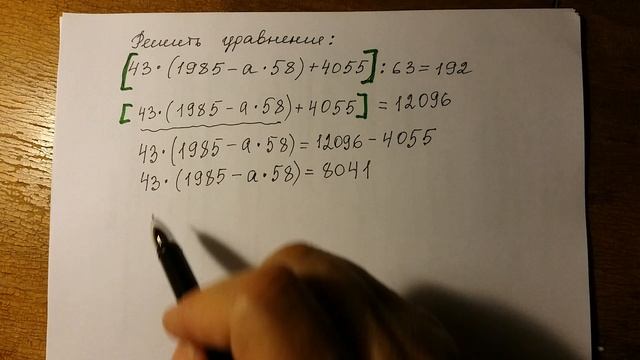 Решить уравнение:
[43·(1985-a·58)+4055]:63=192
[43·(1985-a·58)+4055]=12096
43·(1985-a·58)=12096-4055
43·(1985-a·58)=8041